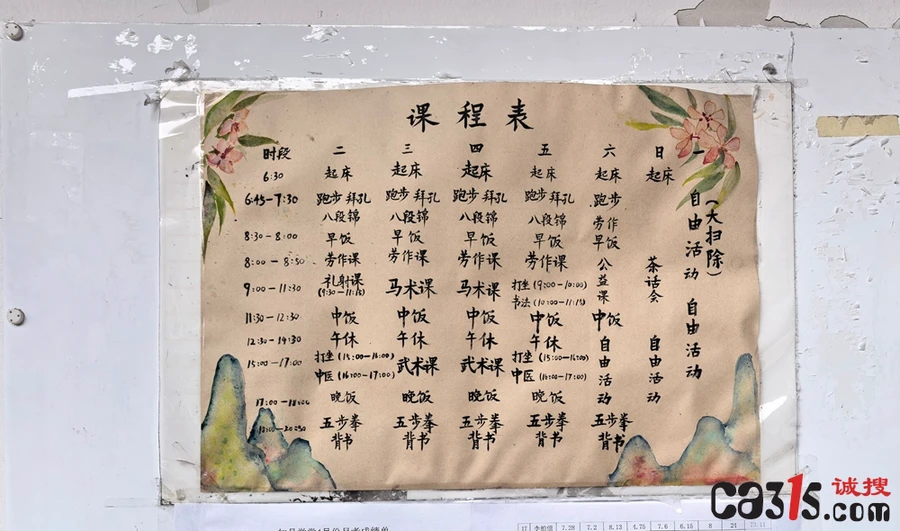 课程表
时段 二 三 四 五 六 日 一
6:30 起床 起床 起床 起床 起床 起床
6:45-7:30 跑步 拜孔 跑步 拜孔 跑步 拜孔 跑步 拜孔 跑步
八段锦 八段锦 八段锦 八段锦 劳作
8:30-8:00 早饭 早饭 早饭 早饭 早饭
8:00-8:50 劳作课 劳作课 劳作课 劳作课 公益课
9:00-11:30 礼射课 马术课 马术课 打坐(9:00-10:00)
(9:30-11:15) 书法(10:00-11:15)
茶话会
11:30-12:30 中饭 中饭 中饭 中饭 中饭
12:30-14:30 午休 午休 午休 午休 自由活动 自由活动
15:00-17:00 打坐(15:00-16:00) 武术课 武术课 打坐(15:00-16:00)
中医(16:00-17:00) 中医(16:00-17:00)
17:00-18:00 晚饭 晚饭 晚饭 晚饭
五步拳 五步拳 五步拳 五步拳 五步拳
背书 背书 背书 背书 背书
(大扫除)
自由活动 自由活动
17 7.28 7.2 8.13 6.75 7.6 6.15 8 24
ca315 诚搜
.com